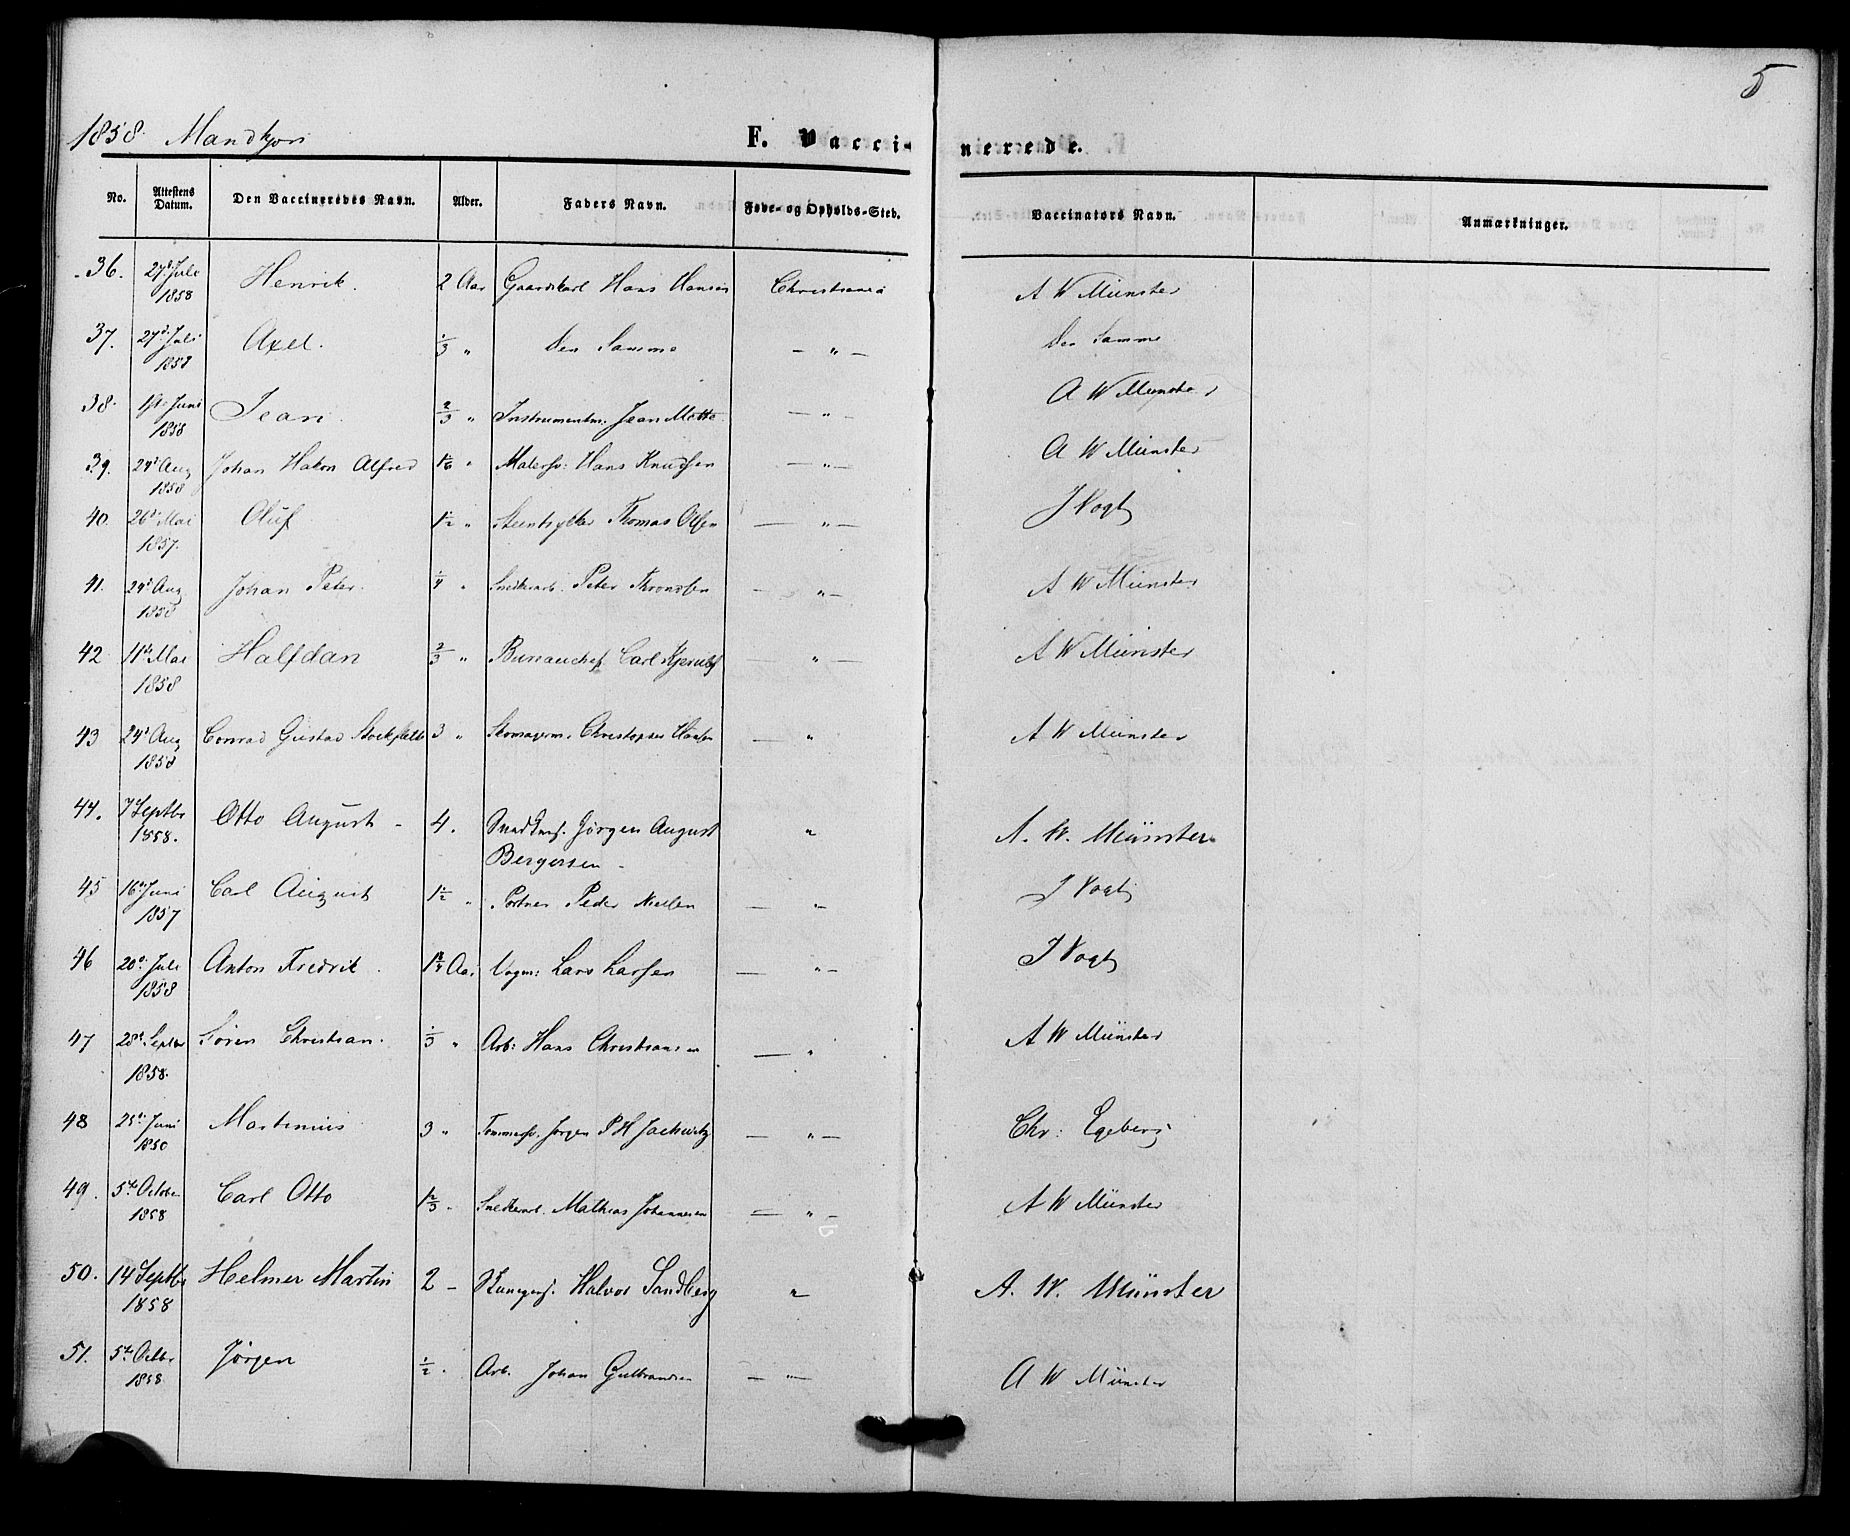 5
1858. Mandkjøn
F. Vaccinerede.
No. Attestens Datum. Den Vaccineredes Navn. Alder. Faders Navn. Føde- og Opholds-Sted. Vaccinators Navn. Anmærkninger.
36. 27d Juli 1858 Henrik. 2 Aar Gaardskarl Hans Hansen Christiania A W Münster
37. 27d. Juli 1858 Axel. 1/3 " Den Samme — " — Den Samme
38. 1st Juni 1858 Jean. 2/3 " Instrumentm: Jean Mette — " — A W Münster
39. 24d Aug 1858 Johan Hakon Alfred 1/6 " Malersv: Hans Knudsen — " — A W Münster
40. 26d Mai 1857. Oluf 1 1/2 " Steentrykker Thomas Olsen — " — J Vogt
41. 24d Aug 1858 Johan Peter. 1/4 " Snedkerarb. Peter Thronsen — " — A W Münster
42 11te Mai 1858 Halfdan 2/3 " Bureauchef Carl Kjerulf — " — A W Münster
43 24d Aug 1858 Conrad Gustav Stockfleth 3 " Skomagerm. Christopher Hansen — " A W Münster
44. 7 Septbr 1858. Otto August - 4. Jørgen August " A. W. Münster
Bergersen -
45 16d Juni 1857 Carl August 1 1/2 " Portner Peder Nielsen — " — J Vogt
46 20d Juli 1858 Anton Fredrik. 1 3/4 Aar Vogm: Lars Larsen — " — J Vogt
47 28d Septbr 1858. Søren Christian. 1/3 " Arb: Hans Christiansen — " A W Münster
48 25d Juni 1850 Martinius 3 " Tømmersv. Jørgen P H — " — Chr: Egeberg
49. 5te October 1858 Carl Otto 1 2/3 " Snedkerarb. Mathias Johannesen — " — A W Münster
50. 14 Septbr 1858 Helmer Martin 2 - Halvor Sandberg " A. W. Münster
51. 5te Octbr 1858 Jørgen 1/2 . Arb. Johan Gulbrandsen — " — A W Münster